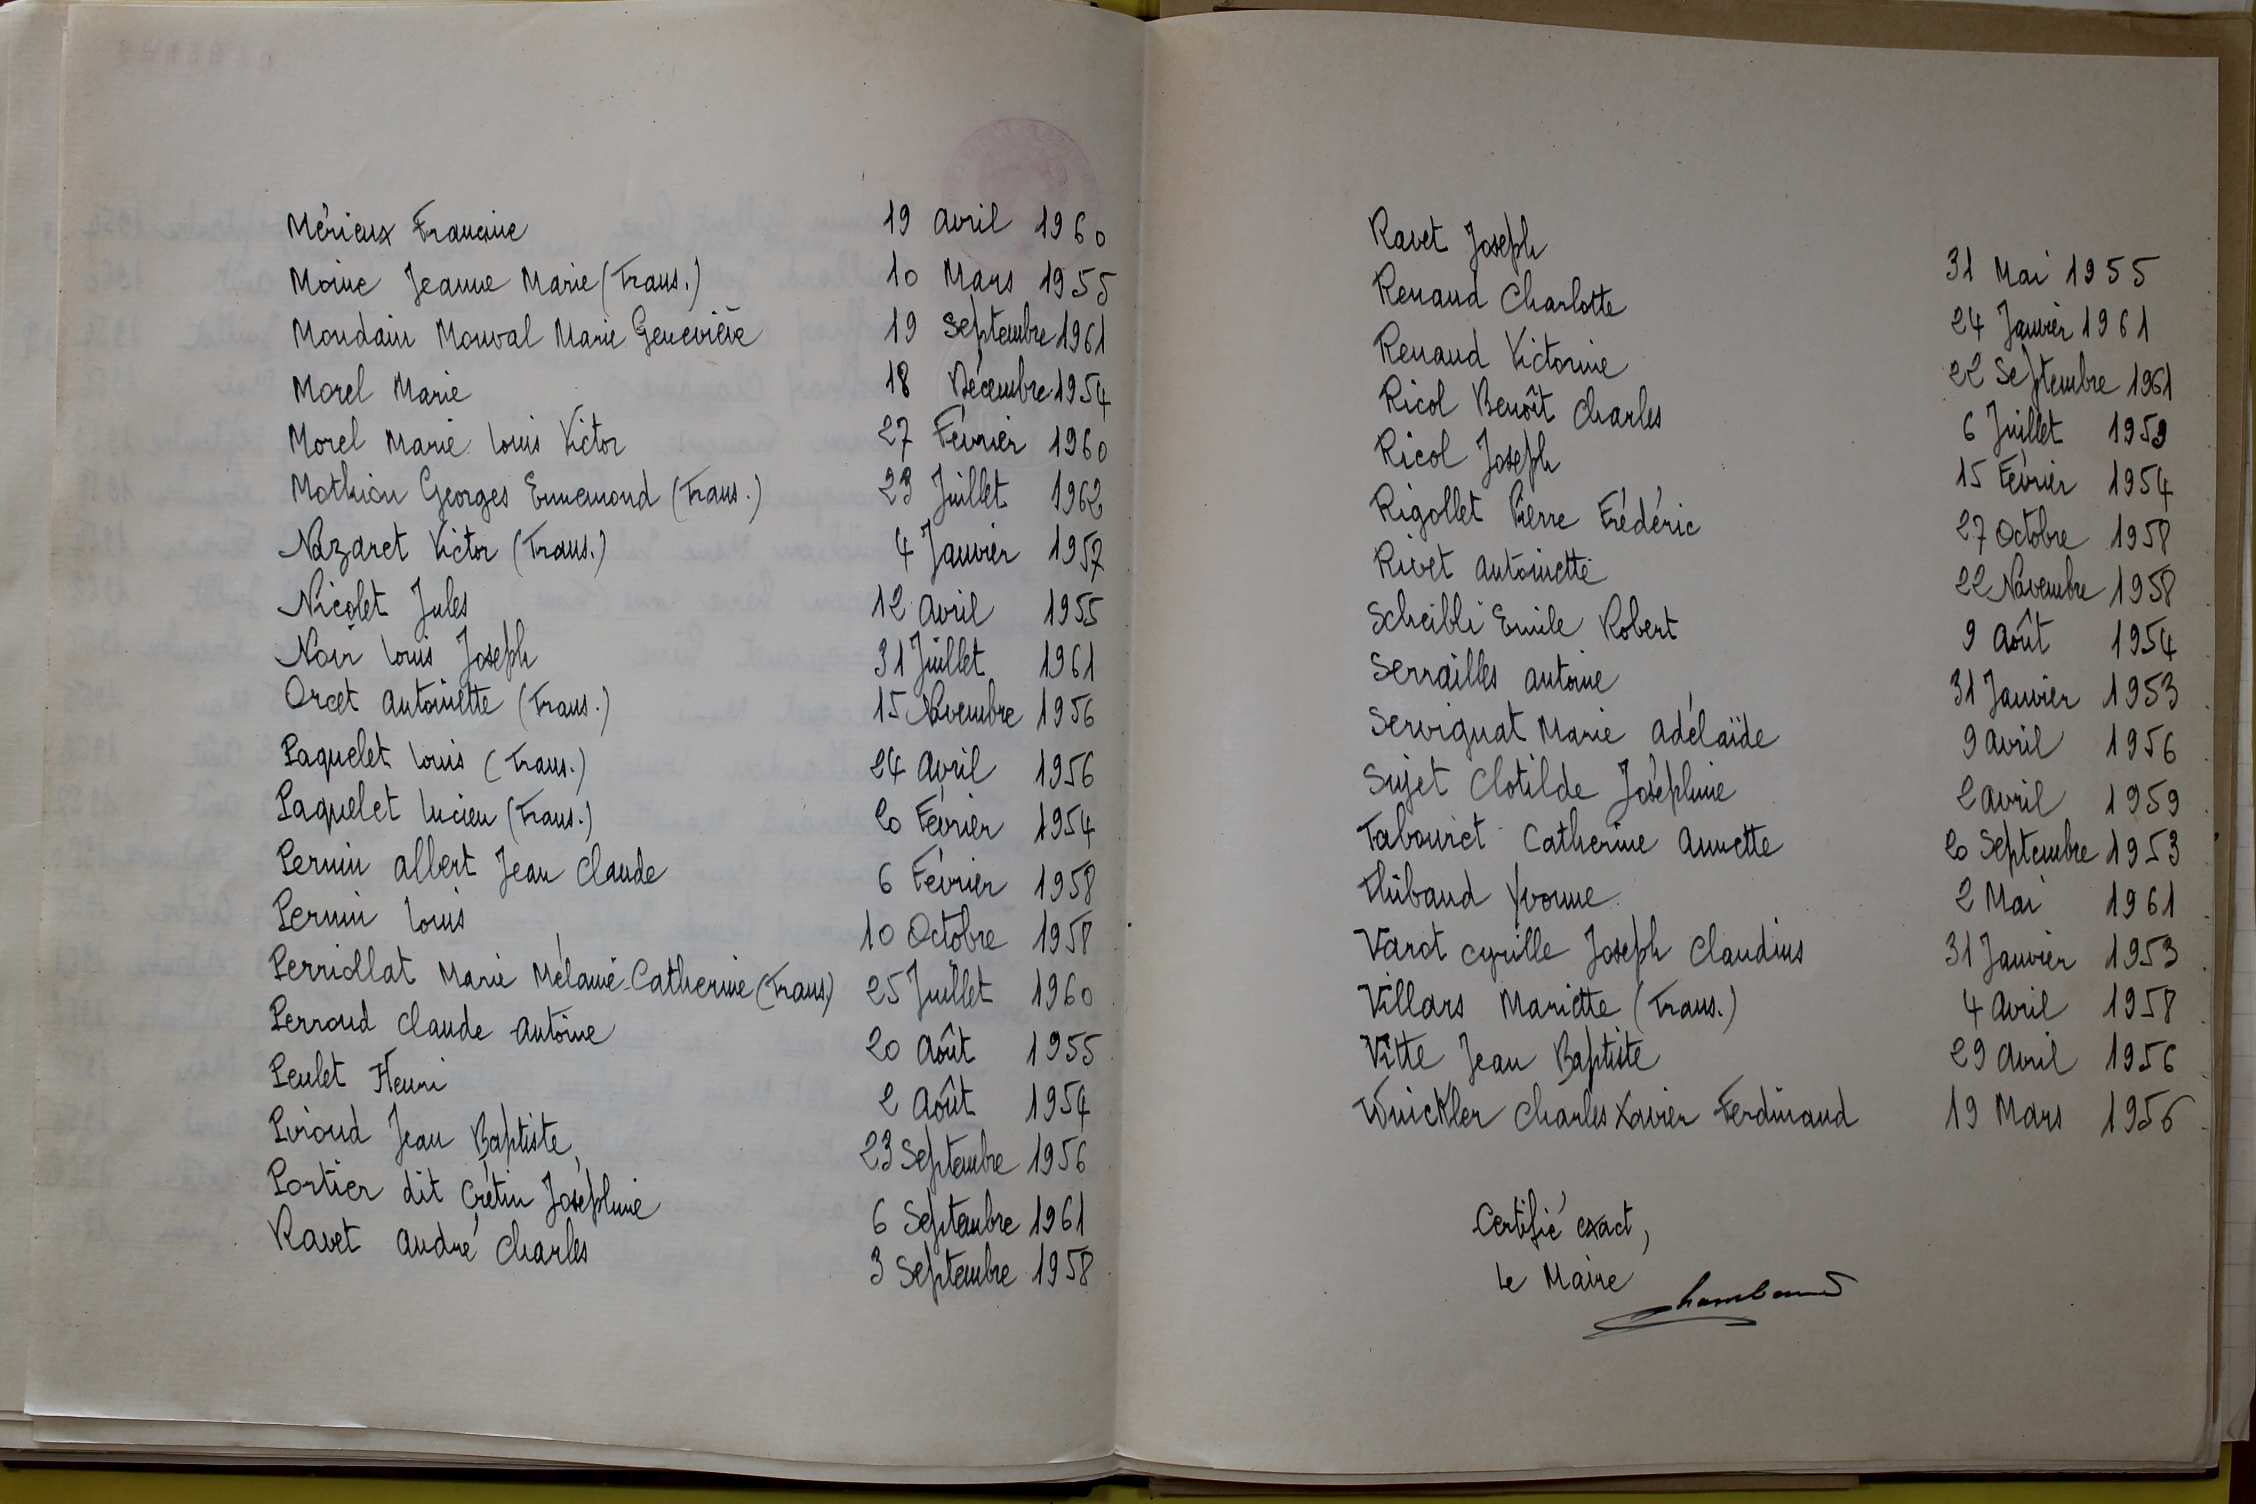 Mérieux Francine 19 Avril 1960
Moine Jeanne Marie (Trans.) 10 Mars 1955
Moudain Monval Marie Geneviève 19 Septembre 1961
Morel Marie 18 Décembre 1954
Morel Marie Louis Victor 27 Février 1960
Mathion Georges Ennemond (Trans.) 23 Juillet 1962
Nazaret Victor (Trans.) 4 Janvier 1957
Nicolet Jules 12 Avril 1955
Noir Louis Joseph 31 Juillet 1961
Orcet Antoinette (Trans.) 15 Novembre 1956
Paquelet Louis (Trans.) 24 Avril 1956
Paquelet Lucien (Trans.) 20 Février 1954
Pernin Albert Jean Claude 6 Février 1958
Pernin Louis 10 Octobre 1958
Perriollat Marie Mélanie-Catherine (Trans) 25 Juillet 1960
Perroud Claude Antoine 20 Août 1955
Peulet Henri 2 Août 1954
Piroud Jean Baptiste, 23 Septembre 1956
Portier dit Crétin Joséphine 6 Septembre 1961
Ravet André Charles 3 Septembre 1958
Ravet Joseph 31 Mai 1955
Renaud Charlotte 24 Janvier 1961
Renaud Victorine 22 Septembre 1961
Ricol Benoît Charles 6 Juillet 1959
Ricol Joseph 15 Février 1954
Rigollet Pierre Frédéric 27 Octobre 1958
Rivet Antoinette 22 Novembre 1958
Scheibli Emile Robert 9 Août 1954
Serrailles Antoine 31 Janvier 1953
Servignat Marie Adélaïde 9 Avril 1956
Sujet Clotilde Joséphine 2 Avril 1959
Tabouret Catherine Annette 20 Septembre 1953
Thibaud Yvonne 2 Mai 1961
Varot Cyrille Joseph Claudius 31 Janvier 1953
Villars Mariette (Trans.) 4 Avril 1958
Vitte Jean Baptiste 29 Avril 1956
Winckler Charles Xavier Ferdinand 19 Mars 1956
Certifié exact,
Le Maire